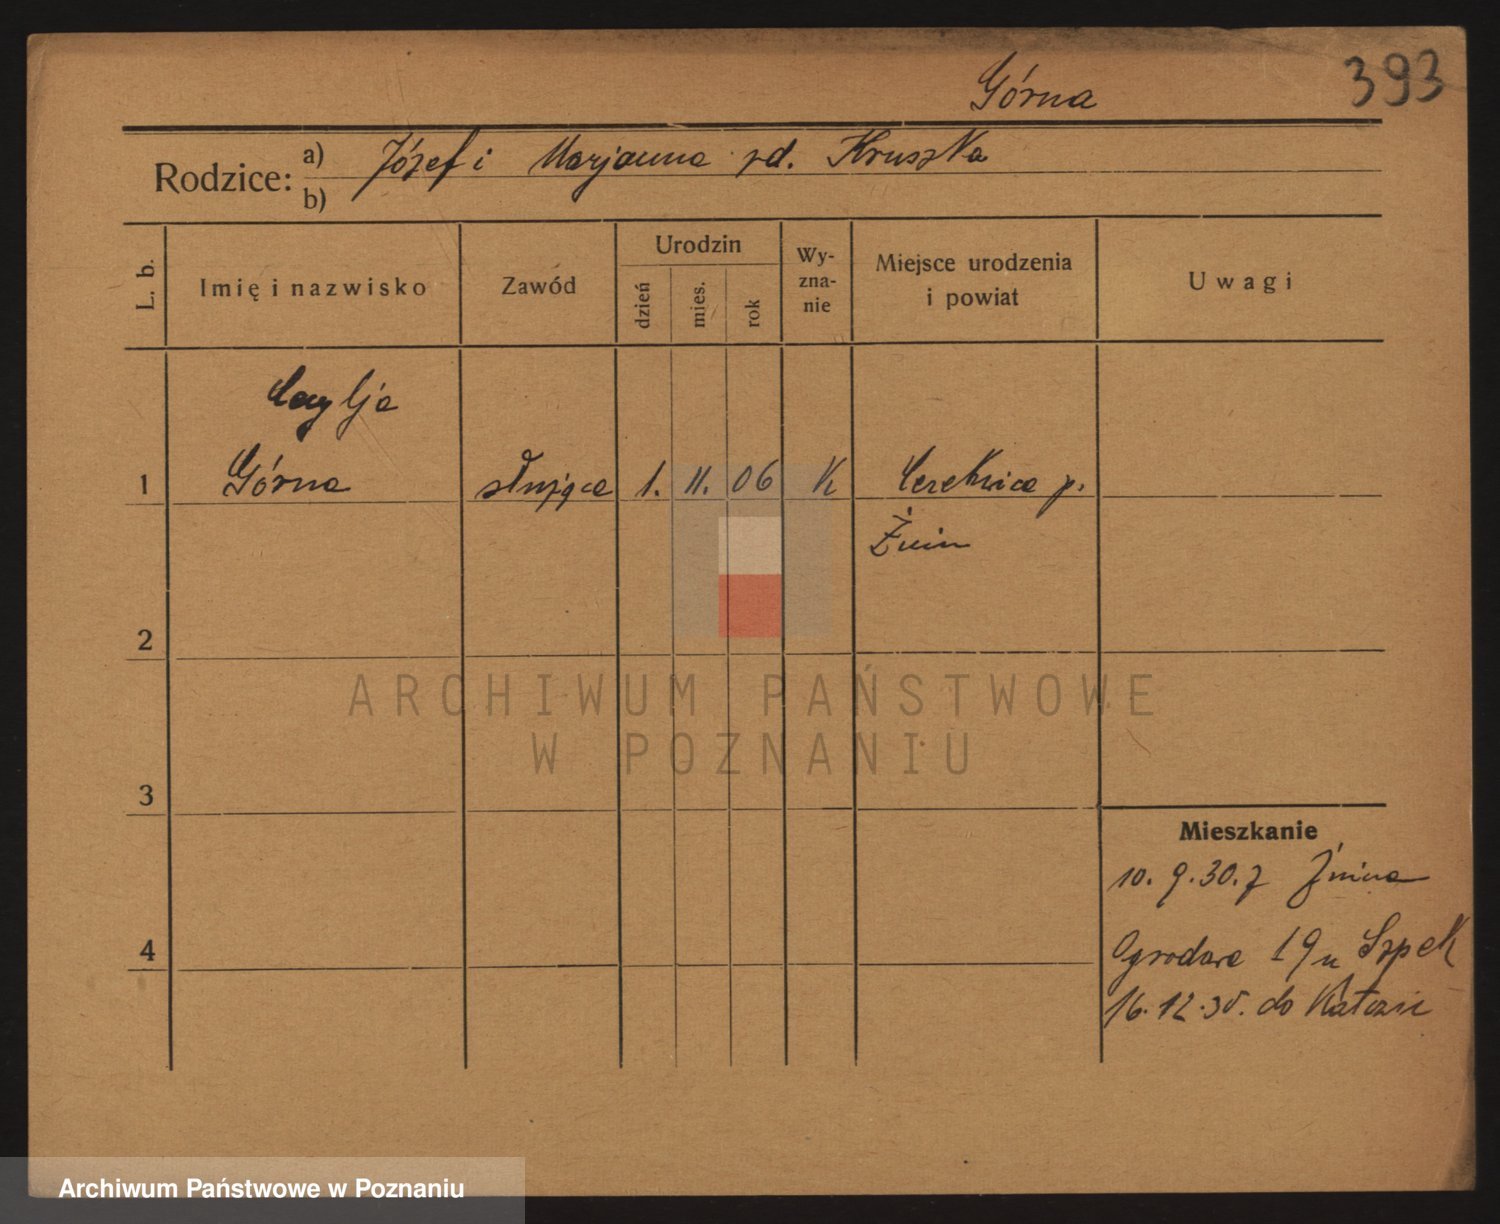 Górna
393
Rodzice: a) Józef i Marjanna zd. Kruszka
b)
L. b. Imię i nazwisko Zawód Urodzin dzień mies. rok Wy-zna-nie Miejsce urodzenia i powiat Uwagi
Cecylja
1 Górna służąca 1. 11. 06 K Cerekwica p.
Żnin
2
ARCHIWUM PAŃSTWOWE
W POZNANIU
3
Mieszkanie
10. 9. 30. z Żnina
4 Ogrodowa 19 u Szpek
16. 12. 30. do
Archiwum Państwowe w Poznaniu